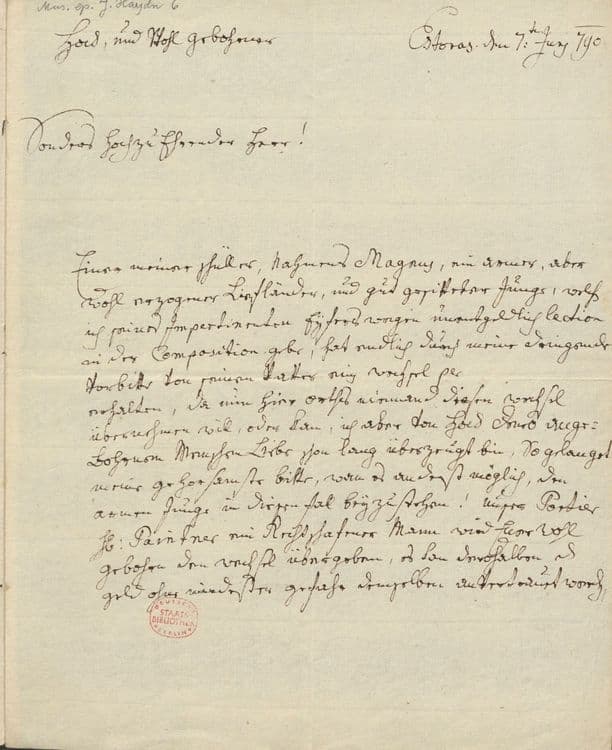 Mus. ep. J. Haydn 6
Hoch, und Wohl gebohrner
Estoras. den 7: Juny 790
Sonders Hochzu Ehrender Herr!
Einer meiner schüller, Nahmens Magnus, ein armer, aber
wohl erzogener Liefländer, und gut gesitteter Junge, welch
ich seines Impertinenten Eyfers wegen unentgeldlich lection
in der Composition gebe, hat endlich durch meine dringende
Vorbitte von seinen Vatter ein wechsel per
erhalten, da nun hier orths niemand diesen wechsel
übernehmen wil, oder kan, ich aber von Hoch dero ange-
bohrnen Menschen Liebe schon lang überzeugt bin, So gelanget
meine gehorsamste bitte, wan es anderst möglich, den
armen Junge in diesen fal beyzustehen! unser Portier
H: Paintner ein Rechtschafener Mann wird Euer wohl
gebohrn den wechsel übergeben, es kan derohalben d
geld ohne mindester gefahr demselben anvertrauet werden,
DEUTSCHE
STAATS-
BIBLIOTHEK
BERLIN